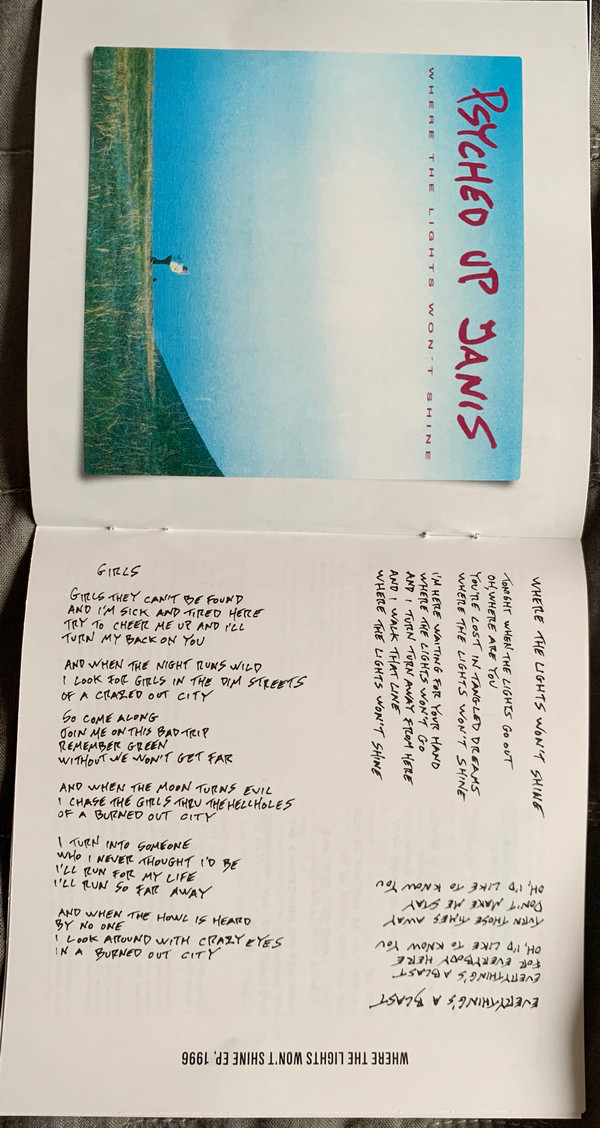 PSYCHED UP JANIS
WHERE THE LIGHTS WON'T SHINE
GIRLS
GIRLS THEY CAN'T BE FOUND
AND I'M SICK AND TIRED HERE
TRY TO CHEER ME UP AND I'LL
TURN MY BACK ON YOU
AND WHEN THE NIGHT RUNS WILD
I LOOK FOR GIRLS IN THE DIM STREETS
OF A CRAZED OUT CITY
SO COME ALONG
JOIN ME ON THIS BAD TRIP
REMEMBER GREEN
WITHOUT WE WON'T GET FAR
AND WHEN THE MOON TURNS EVIL
I CHASE THE GIRLS THRU THE HELLHOLES
OF A BURNED OUT CITY
I TURN INTO SOMEONE
WHO I NEVER THOUGHT I'D BE
I'LL RUN FOR MY LIFE
I'LL RUN SO FAR AWAY
AND WHEN THE HOWL IS HEARD
BY NO ONE
I LOOK AROUND WITH CRAZY EYES
IN A BURNED OUT CITY
WHERE THE LIGHTS WON'T SHINE
TONIGHT WHEN THE LIGHTS GO OUT
OH, WHERE ARE YOU
YOU'RE LOST IN TANGLED DREAMS
WHERE THE LIGHTS WON'T SHINE
I'M HERE WAITING FOR YOUR HAND
WHERE THE LIGHTS WON'T GO
AND I TURN TURN AWAY FROM HERE
AND I WALK THAT LINE
WHERE THE LIGHTS WON'T SHINE
EVERYTHING'S A BLAST
EVERYTHING'S A BLAST
FOR EVERYBODY HERE
OH, I'D LIKE TO KNOW YOU
TURN THOSE TIMES AWAY
DON'T MAKE ME STAY
OH, I'D LIKE TO KNOW YOU
WHERE THE LIGHTS WON'T SHINE EP, 1996